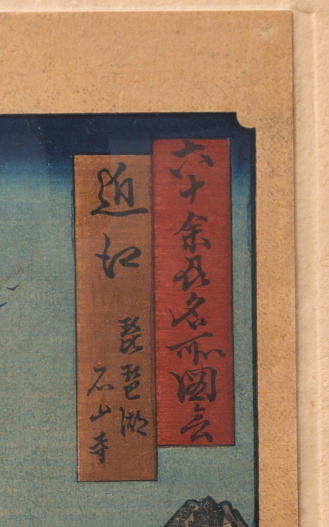 六十余州名所図会
近江
琵琶湖
石山寺